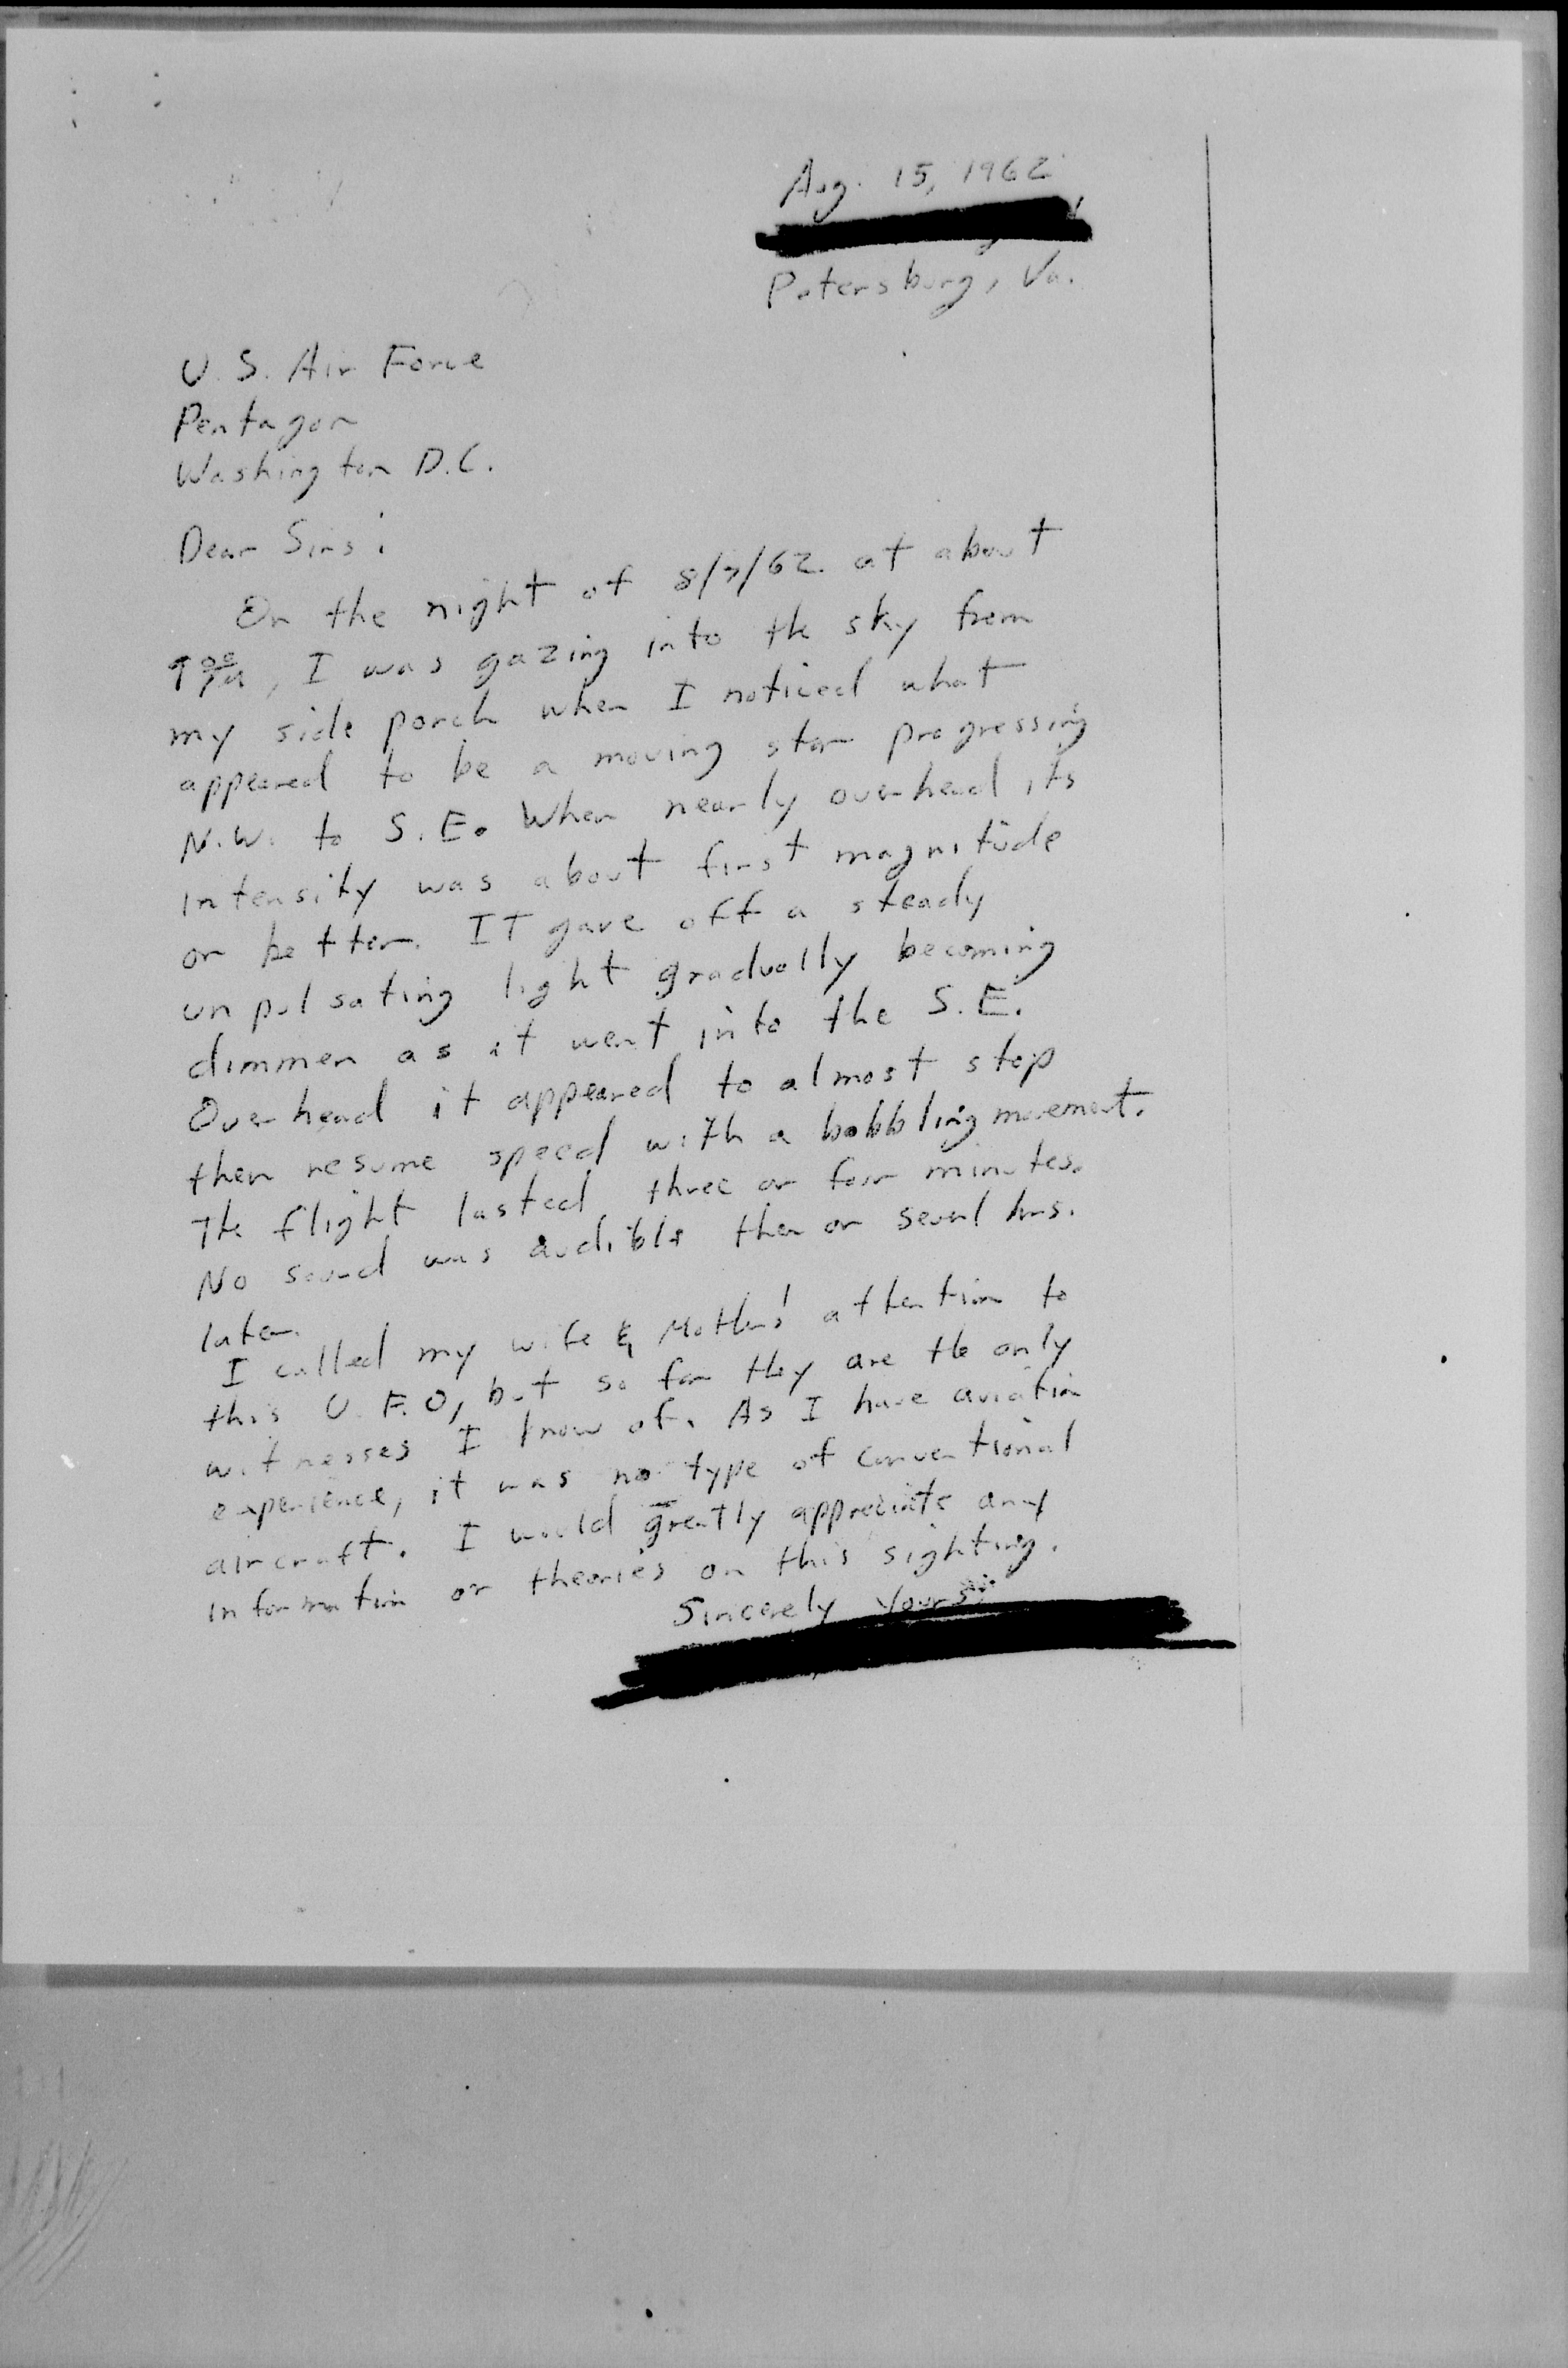 Aug. 15, 1962
Petersburg, Va.
U.S. Air Force
Pentagon
Washington D.C.
Dear Sirs:
On the night of 8/7/62 at about
9 00, I was gazing into the sky from
my side porch when I noticed what
appeared to be a moving star progressing
N.W. to S.E. When nearly overhead its
intensity was about first magnitude
or better. IT gave off a steady
unpulsating light gradually becoming
dimmer as it went into the S.E.
Overhead it appeared to almost stop
then resume speed with a bobbling movement.
The flight lasted three or four minutes.
No sound was audible then or several hrs.
later.
I called my wife & Mother's attention to
this U.F.O, but so far they are the only
witnesses I know of. As I have aviation
experience, it was no type of conventional
aircraft. I would greatly appreciate any
information or theories on this sighting.
Sincerely Yours,